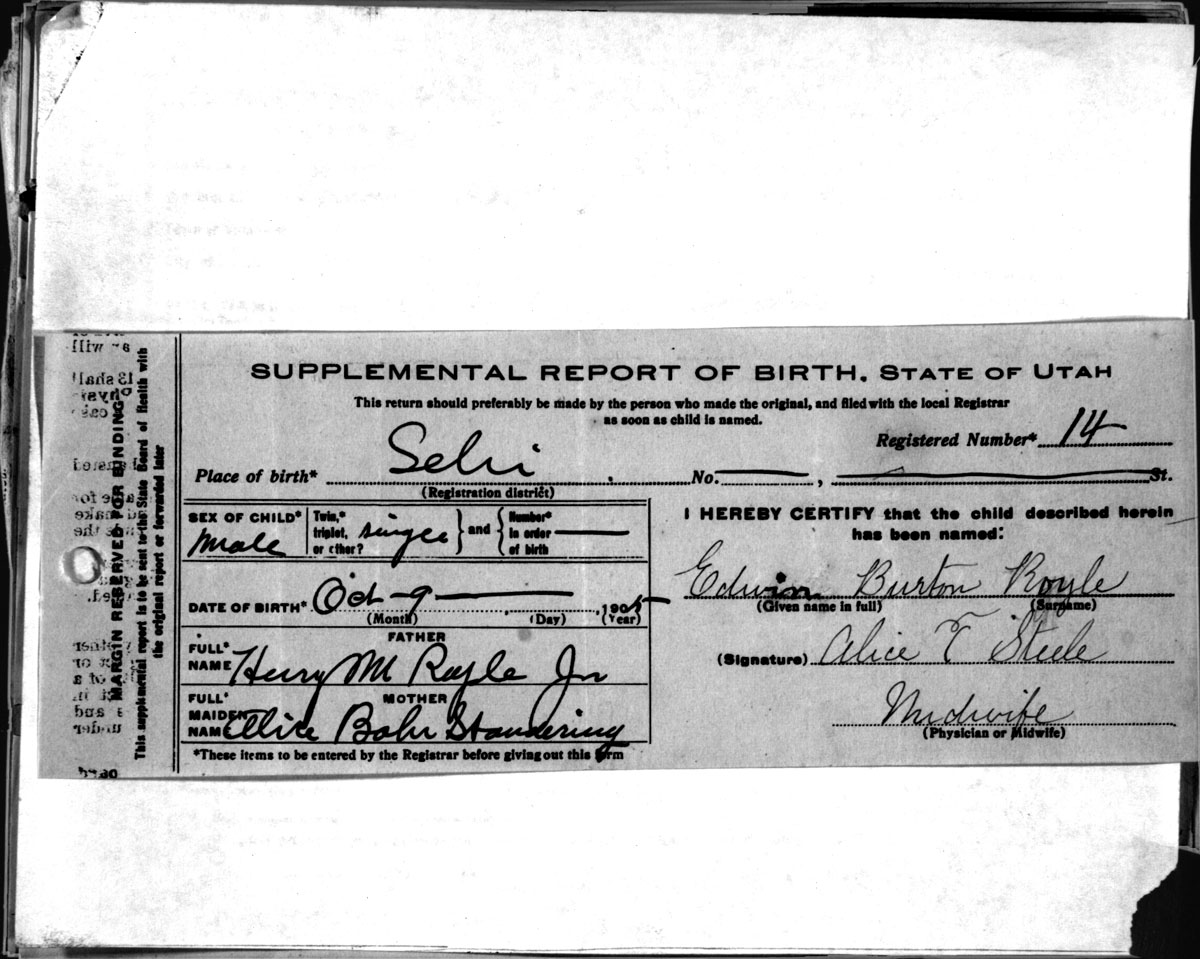 SUPPLEMENTAL REPORT OF BIRTH, STATE OF UTAH
This return should preferably be made by the person who made the original, and filed with the local Registrar
as soon as child is named.
Registered Number* 14
Place of birth* Lehi No. , St.
(Registration district)
SEX OF CHILD* Male
Twin,* triplet, or other? single and Number* in order of birth
DATE OF BIRTH* Oct 9 , 1905
(Month) (Day) (Year)
FATHER
FULL* NAME Henry M Royle Jr
MOTHER
FULL* MAIDEN NAME Alice Standering
*These items to be entered by the Registrar before giving out this form
I HEREBY CERTIFY that the child described herein
has been named:
Edwin Burton Royle
(Given name in full) (Surname)
(Signature) Alice T Steele
Midwife
(Physician or Midwife)
MARGIN RESERVED FOR BINDING
This supplemental report is to be sent to the State Board of Health with
the original report or forwarded later